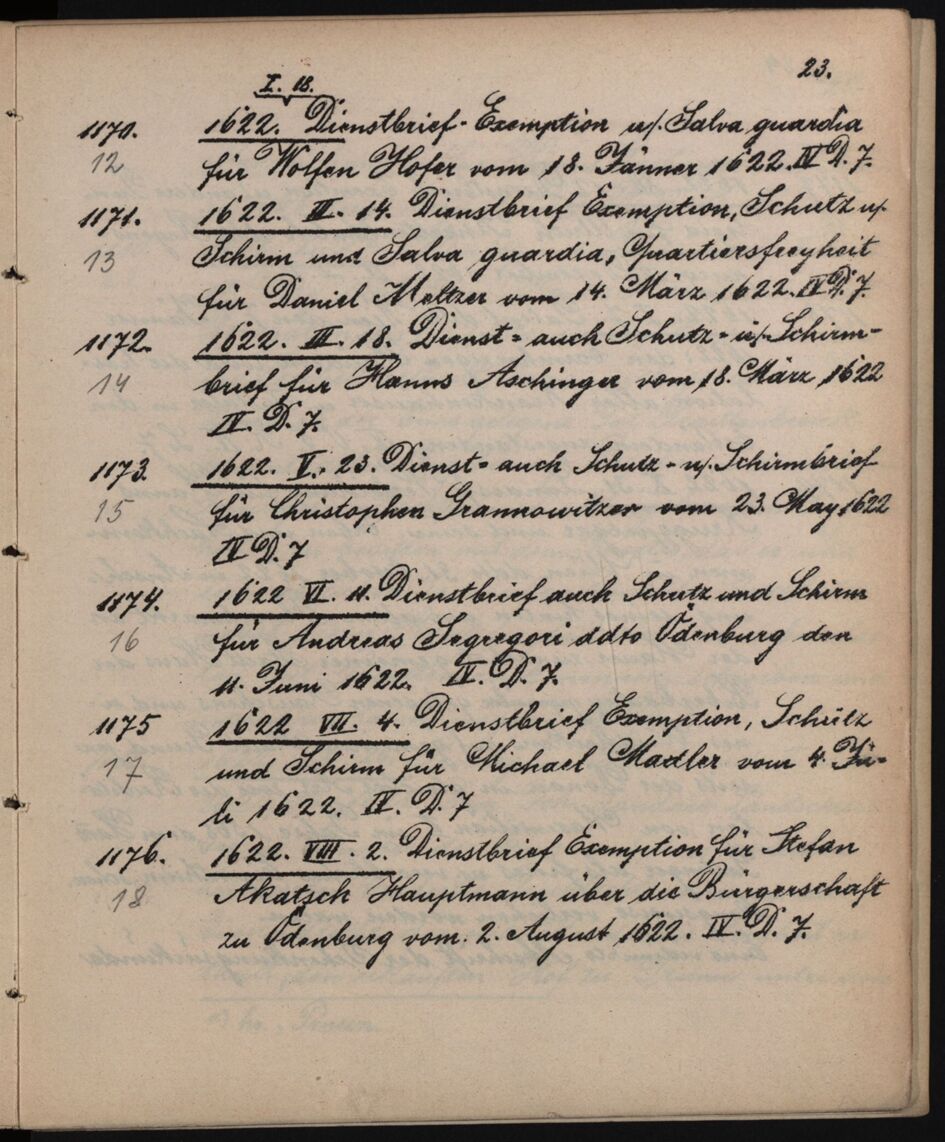 23.
I. 18.
1170. 1622. Dienstbrief-Exemption u/. Salva guardia
12 für Wolfen Hofer vom 18. Jänner 1622. IV D. 7.
1171. 1622. III. 14. Dienstbrief Exemption, Schutz u/.
13 Schirm und Salva guardia, Quartiersfreyheit
für Daniel Meltzer vom 14. März 1622. IV D. 7.
1172. 1622. III. 18. Dienst= auch Schutz= u/. Schirm=
14 brief für Hanns Aschinger vom 18. März 1622
IV. D. 7.
1173. 1622. V. 23. Dienst= auch Schutz= u/. Schirmbrief
15 für Christophen Grannowitzer vom 23. May 1622
IV D. 7
1174. 1622 VI. 11. Dienstbrief auch Schutz und Schirm
16 für Andreas Segregori ddto Ödenburg den
11. Juni 1622. IV. D. 7.
1175 1622 VII. 4. Dienstbrief Exemption, Schutz
17 und Schirm für Michael Maxler vom 4. Ju=
li 1622. IV. D. 7
1176. 1622. VIII. 2. Dienstbrief Exemption für Stefan
18 Akatsch Hauptmann über die Bürgerschaft
zu Ödenburg vom 2. August 1622. IV. D. 7.